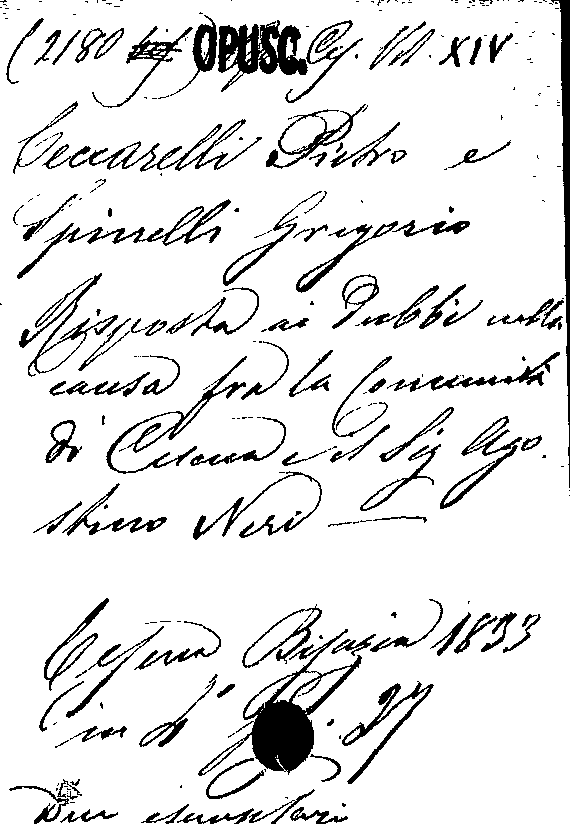 (2180 OPUSC. Cos. Vol. XIV
Ceccarelli Pietro e
Spinelli Grigorio
Risposta ai Dubbi nella
causa fra la Comunità
di Cesena e il Sig Ago-
stino Neri —
Cesena Bisazia 1833
in 4° pg. 27
Due esemplari